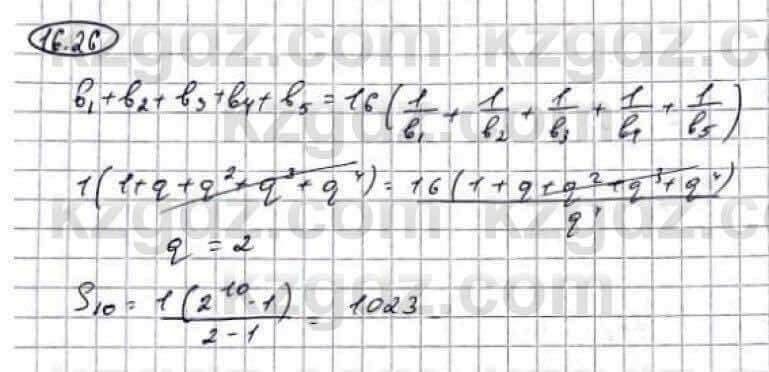 16.26
b₁ + b₂ + b₃ + b₄ + b₅ = 16(1/b₁ + 1/b₂ + 1/b₃ + 1/b₄ + 1/b₅)
1(1+q+q²+q³+q⁴) = 16(1+q+q²+q³+q⁴)/q⁴
q = 2
S₁₀ = 1(2¹⁰-1)/2-1 = 1023
kzgdz.com kzgdz.com
kzgdz.com kzgdz.com
kzgdz.com kzgdz.com
kzgdz.com kzgdz.com